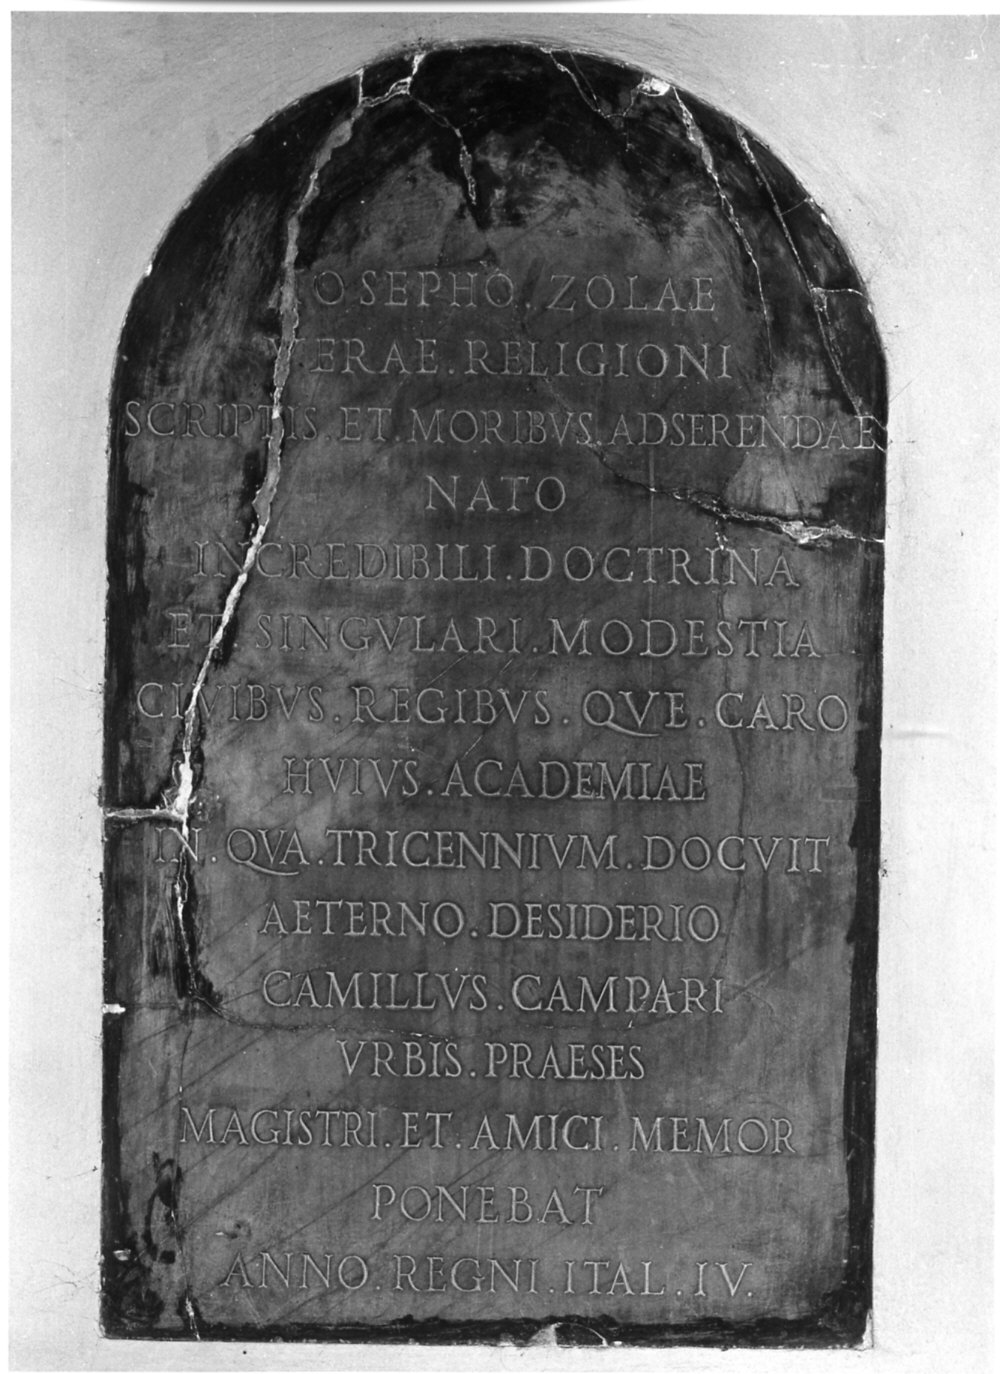 IOSEPHO . ZOLAE
VERAE . RELIGIONI
SCRIPTIS . ET . MORIBVS . ADSERENDAE
NATO
INCREDIBILI . DOCTRINA
ET SINGVLARI . MODESTIA
CIVIBVS . REGIBVS . QVE . CARO
HVIVS . ACADEMIAE
IN . QVA . TRICENNIVM . DOCVIT
AETERNO . DESIDERIO
CAMILLVS . CAMPARI
VRBIS . PRAESES
MAGISTRI . ET . AMICI . MEMOR
PONEBAT
ANNO . REGNI . ITAL . IV .